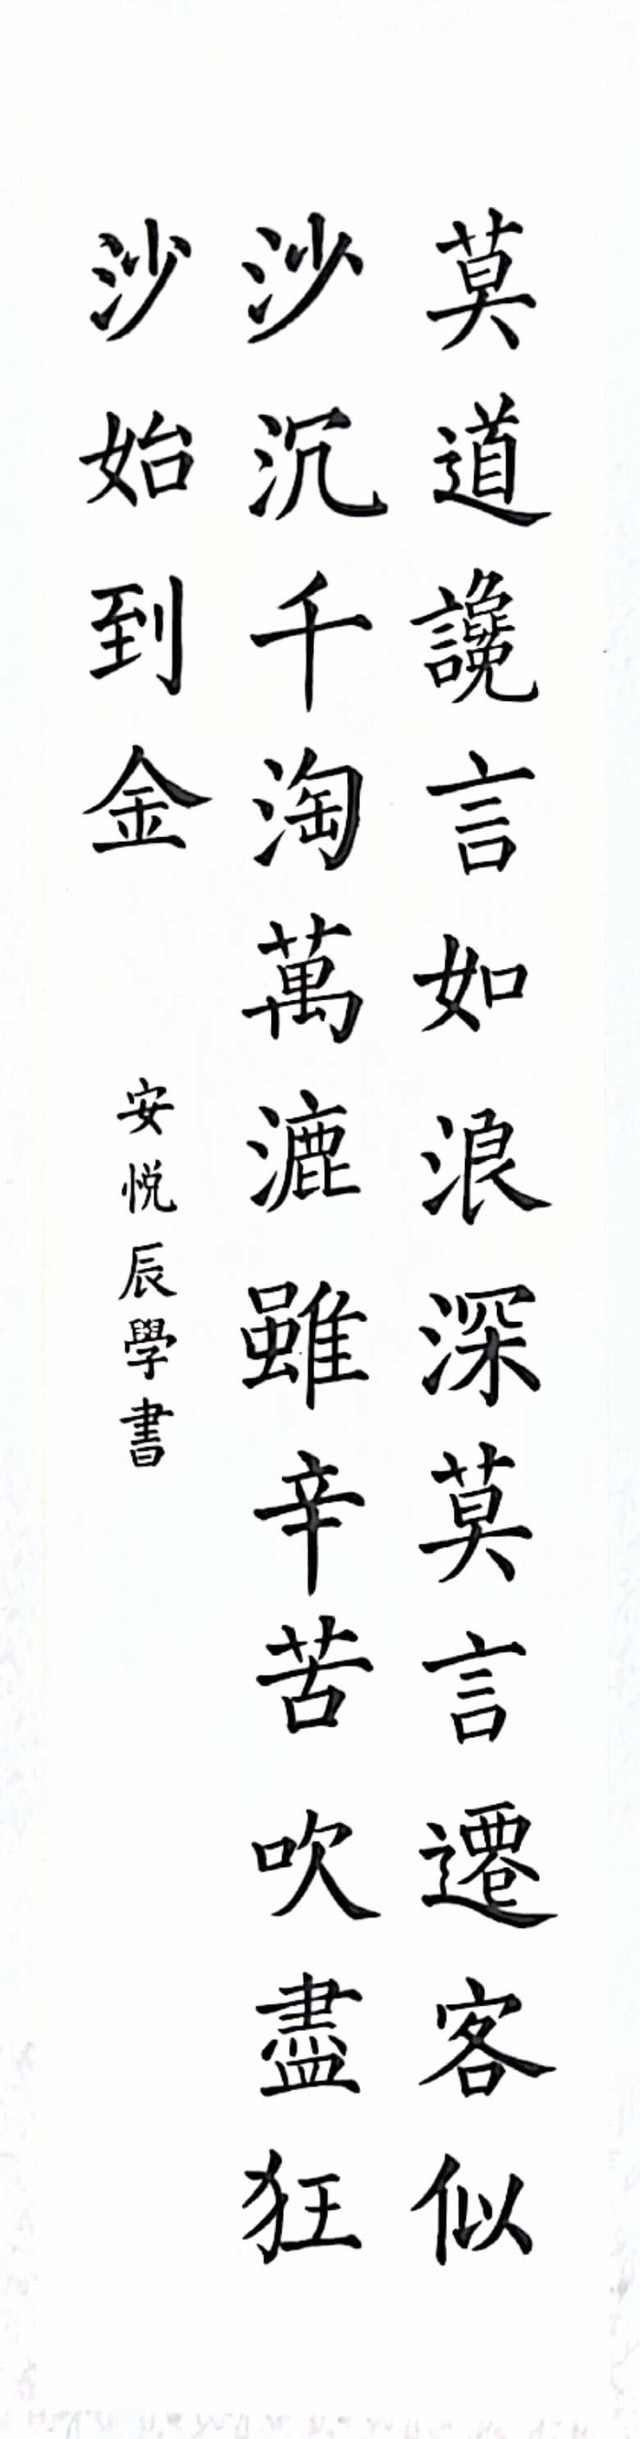 莫道讒言如浪深莫言遷客似
沙沉千淘萬漉雖辛苦吹盡狂
沙始到金
安悦辰學書